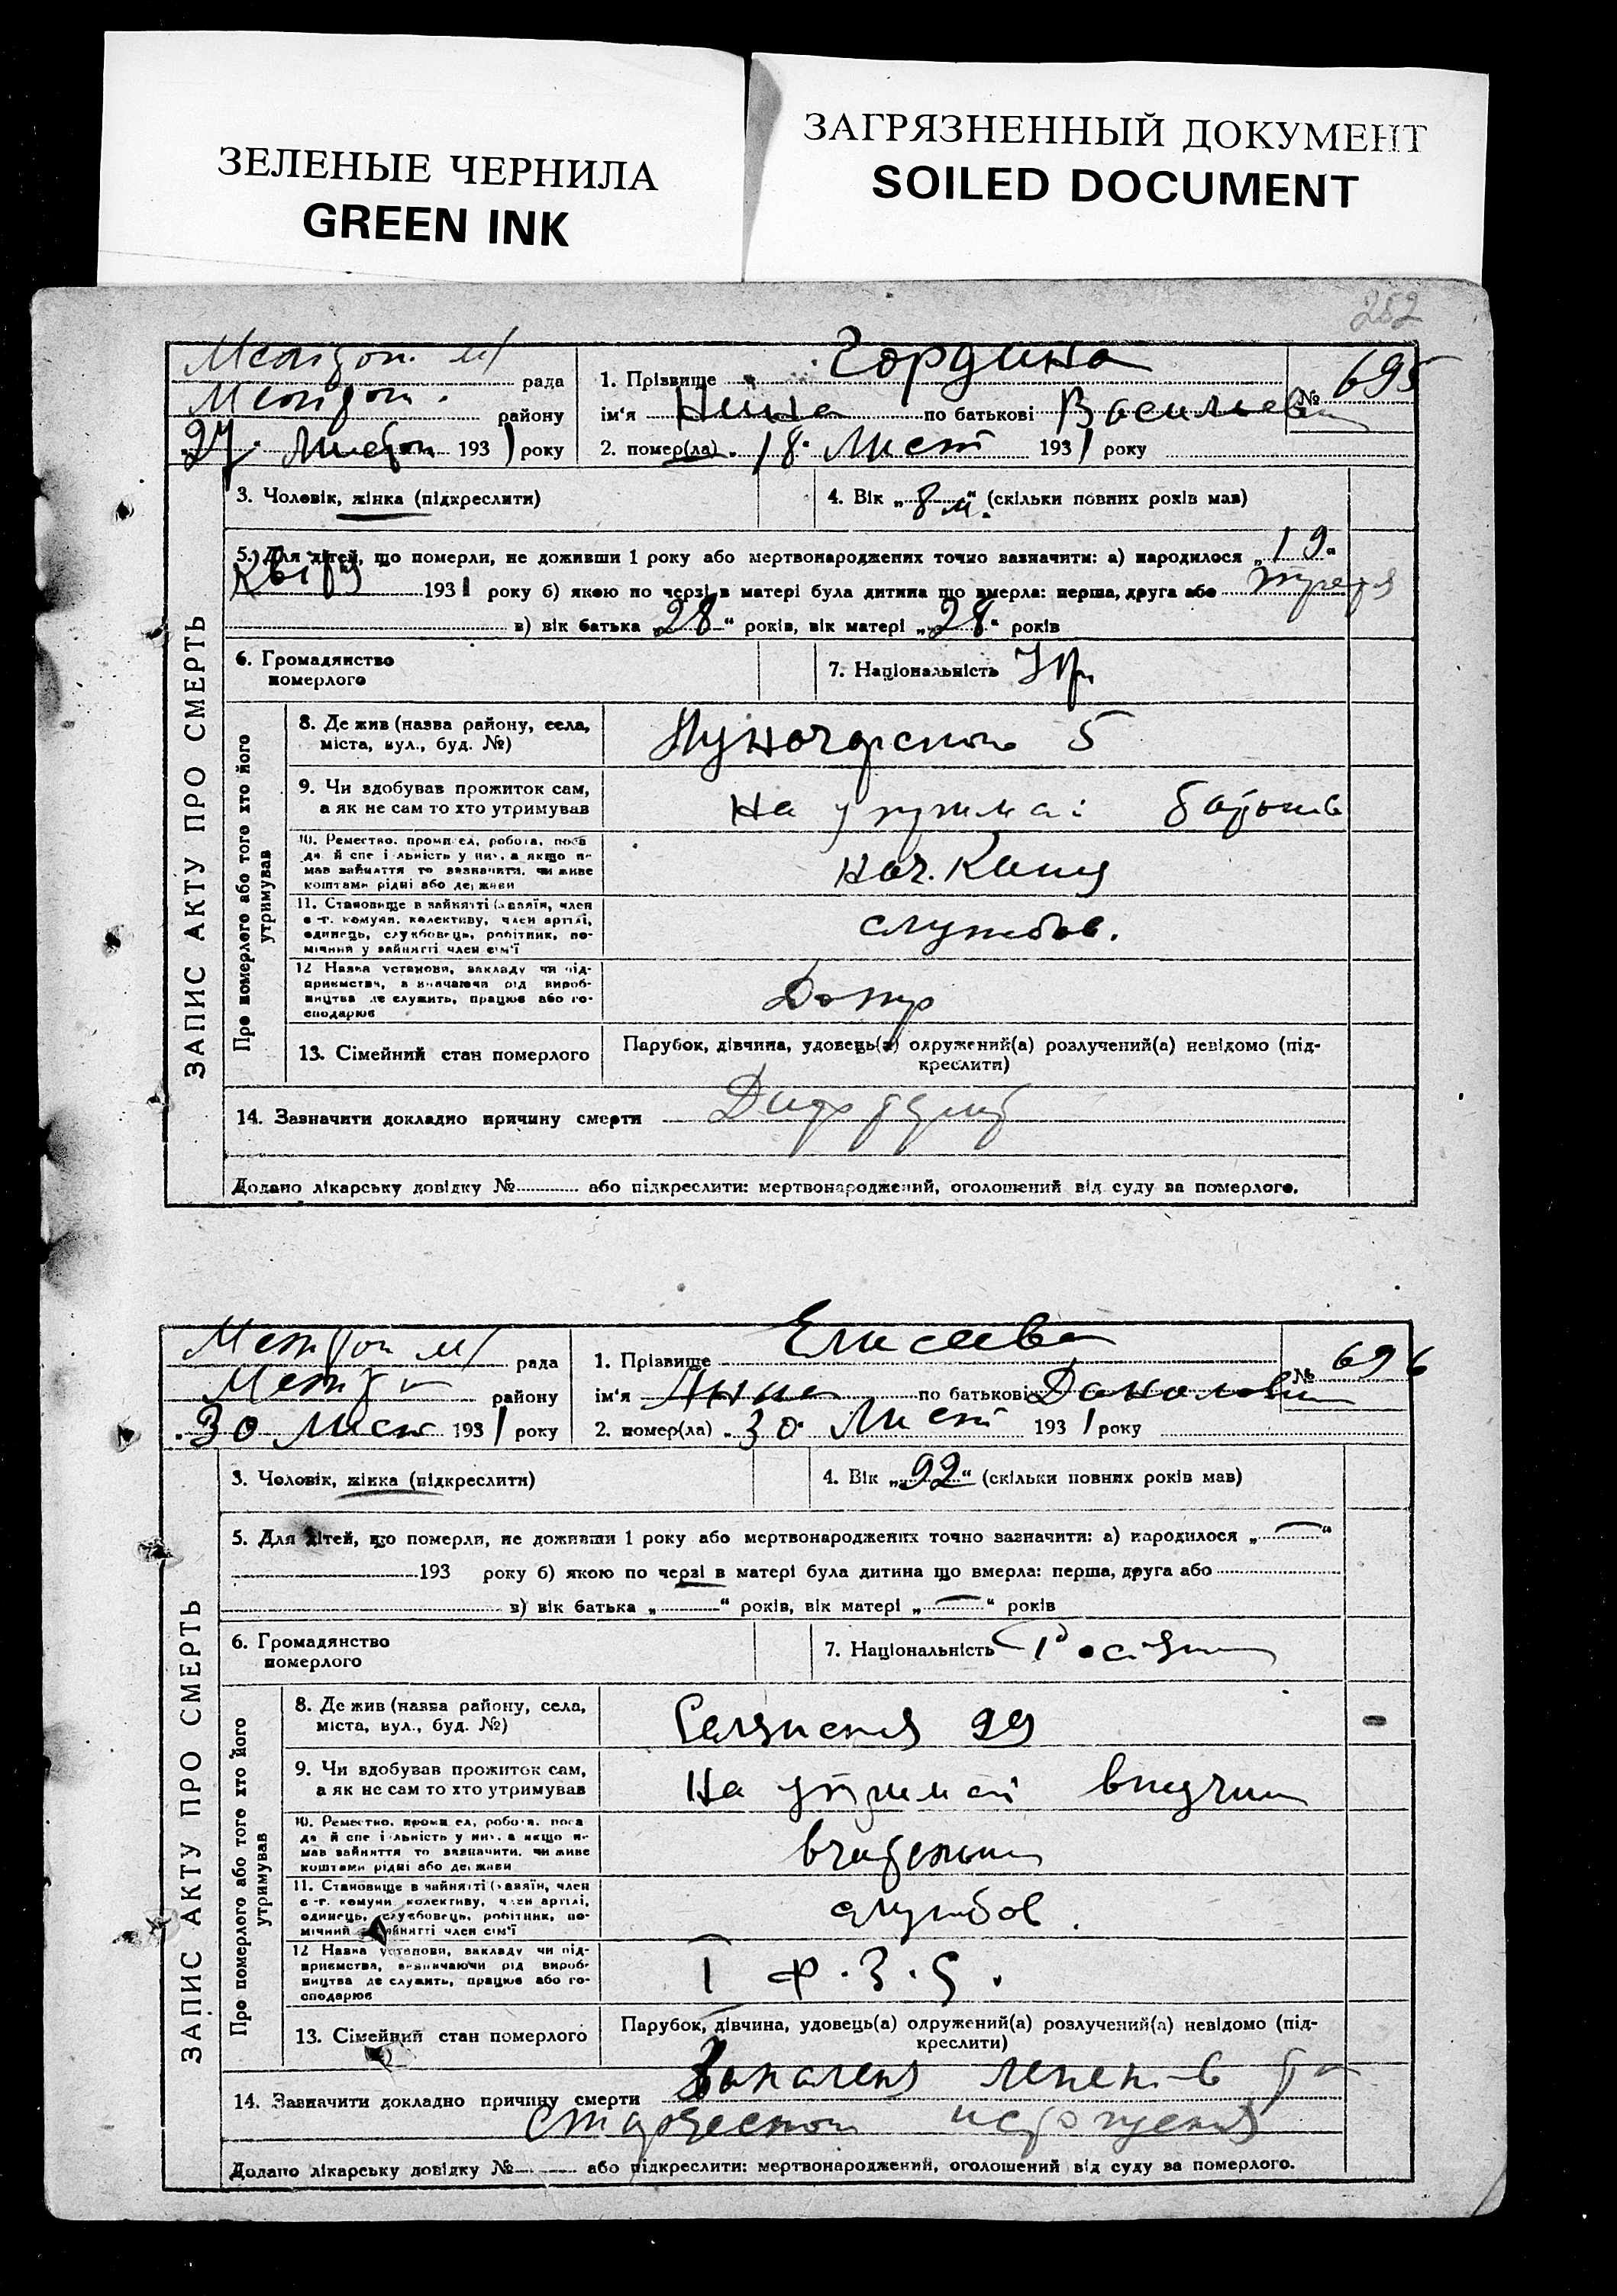 ЗЕЛЕНЫЕ ЧЕРНИЛА
GREEN INK
ЗАГРЯЗНЕННЫЙ ДОКУМЕНТ
SOILED DOCUMENT
282
рада
району
27 1931 року
1. Прізвище Гордина
ім'я Нина по батькові
№ 695
2. помер(ла) 18 Лист 1931 року
3. Чоловік, жінка (підкреслити)
4. Вік „8 м.“ (скільки повних років мав)
5. Для дітей, що померли, не доживши 1 року або мертвонароджених точно зазначити: а) народилося „19“
1931 року б) якою по черзі в матері була дитина що вмерла: перша, друга або
в) вік батька „28“ років, вік матері „28“ років
6. Громадянство померлого
7. Національність Укр
ЗАПИС АКТУ ПРО СМЕРТЬ
Про померлого або того хто його утримував
8. Де жив (назва району, села, міста, вул., буд. №)
Луначарского 5
9. Чи здобував прожиток сам, а як не сам то хто утримував
На утримані батьків
10. Ремество, промисел, робота, посада й спеціальність у них, а якщо не мав зайняття то зазначити, чи живе коштами рідні або держави
11. Становище в зайнятті (хазяїн, член с.-г. комуни, колективу, член артілі, одинець, службовець, робітник, помічний у зайнятті член сім'ї
службов.
12 Назва установи, закладу чи підприємства, зазначаючи рід виробництва де служить, працює або господарює
Допр
13. Сімейний стан померлого
Парубок, дівчина, удовець(а) одружений(а) розлучений(а) невідомо (підкреслити)
14. Зазначити докладно причину смерти
Додано лікарську довідку № або підкреслити: мертвонароджений, оголошений від суду за померлого.
рада
району
30 Лист 1931 року
1. Прізвище Елисеева
ім'я Анна по батькові
№ 696
2. помер(ла) 30 Лист 1931 року
3. Чоловік, жінка (підкреслити)
4. Вік „92“ (скільки повних років мав)
5. Для дітей, що померли, не доживши 1 року або мертвонароджених точно зазначити: а) народилося „—“
193 року б) якою по черзі в матері була дитина що вмерла: перша, друга або
в) вік батька „ “ років, вік матері „—“ років
6. Громадянство померлого
7. Національність
ЗАПИС АКТУ ПРО СМЕРТЬ
Про померлого або того хто його утримував
8. Де жив (назва району, села, міста, вул., буд. №)
99
9. Чи здобував прожиток сам, а як не сам то хто утримував
На утримані
10. Ремество, промисел, робота, посада й спеціальність у них, а якщо не мав зайняття то зазначити, чи живе коштами рідні або держави
11. Становище в зайнятті (хазяїн, член с.-г. комуни, колективу, член артілі, одинець, службовець, робітник, помічний у зайнятті член сім'ї
службов.
12 Назва установи, закладу чи підприємства, зазначаючи рід виробництва де служить, працює або господарює
І Ф. З. С.
13. Сімейний стан померлого
Парубок, дівчина, удовець(а) одружений(а) розлучений(а) невідомо (підкреслити)
14. Зазначити докладно причину смерти
Запаленя легенів
Додано лікарську довідку № або підкреслити: мертвонароджений, оголошений від суду за померлого.